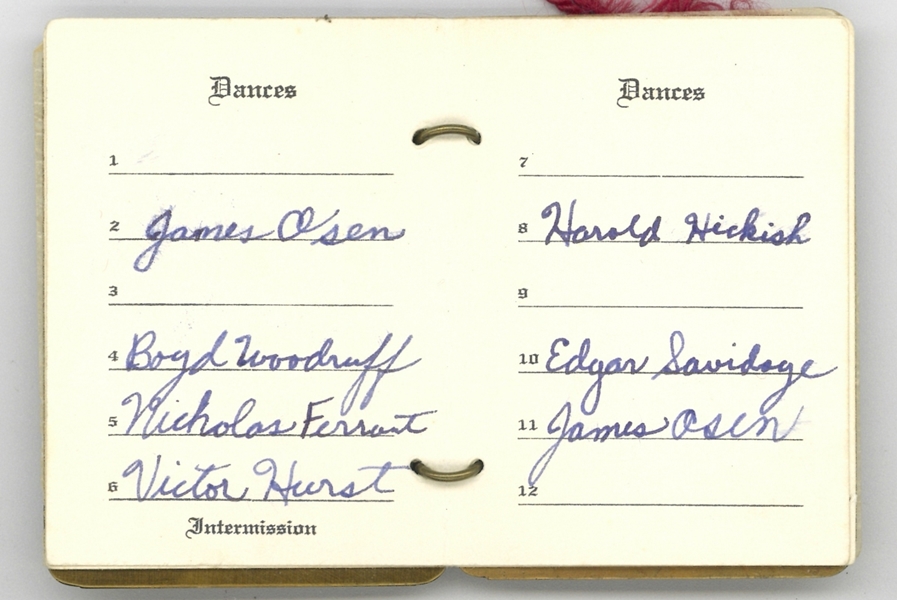 Dances
1
2 James O'sen
3
4 Boyd Woodruff
5 Nicholas Ferrant
6 Victor Hurst
Intermission
Dances
7
8 Harold Hickish
9
10 Edgar Savidge
11 James Osen
12